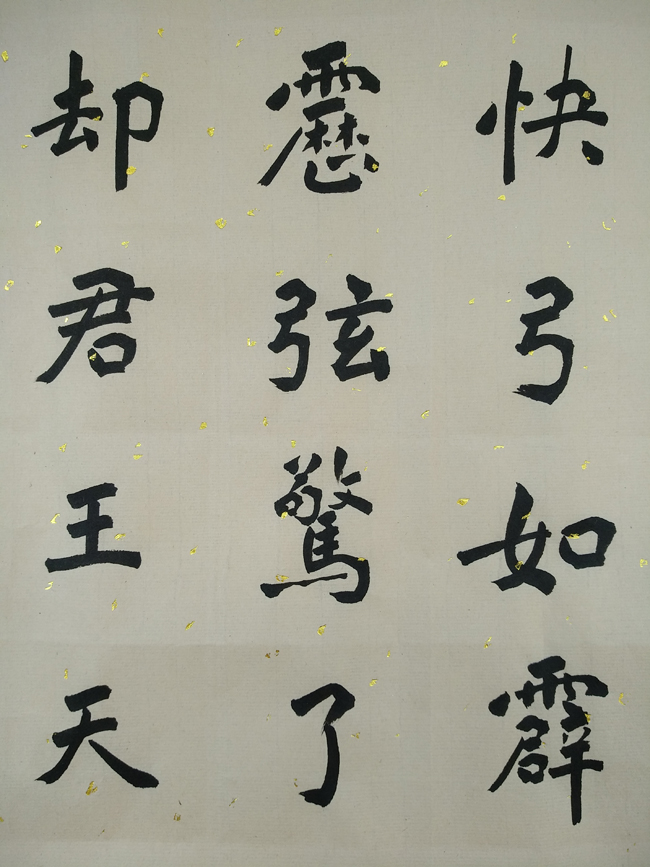 快弓如霹
靂弦驚了
却君王天